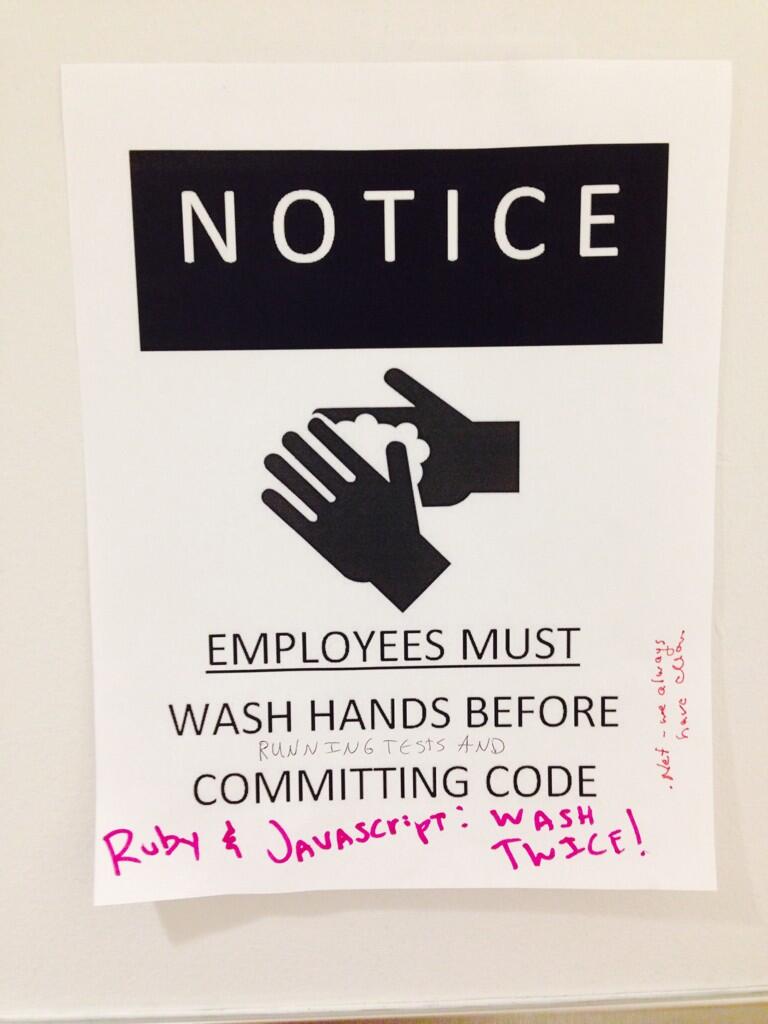 NOTICE
EMPLOYEES MUST
WASH HANDS BEFORE
RUNNING TESTS AND
COMMITTING CODE
Ruby & JAVASCRIPT: WASH
TWICE!
.Net - we always
have clean